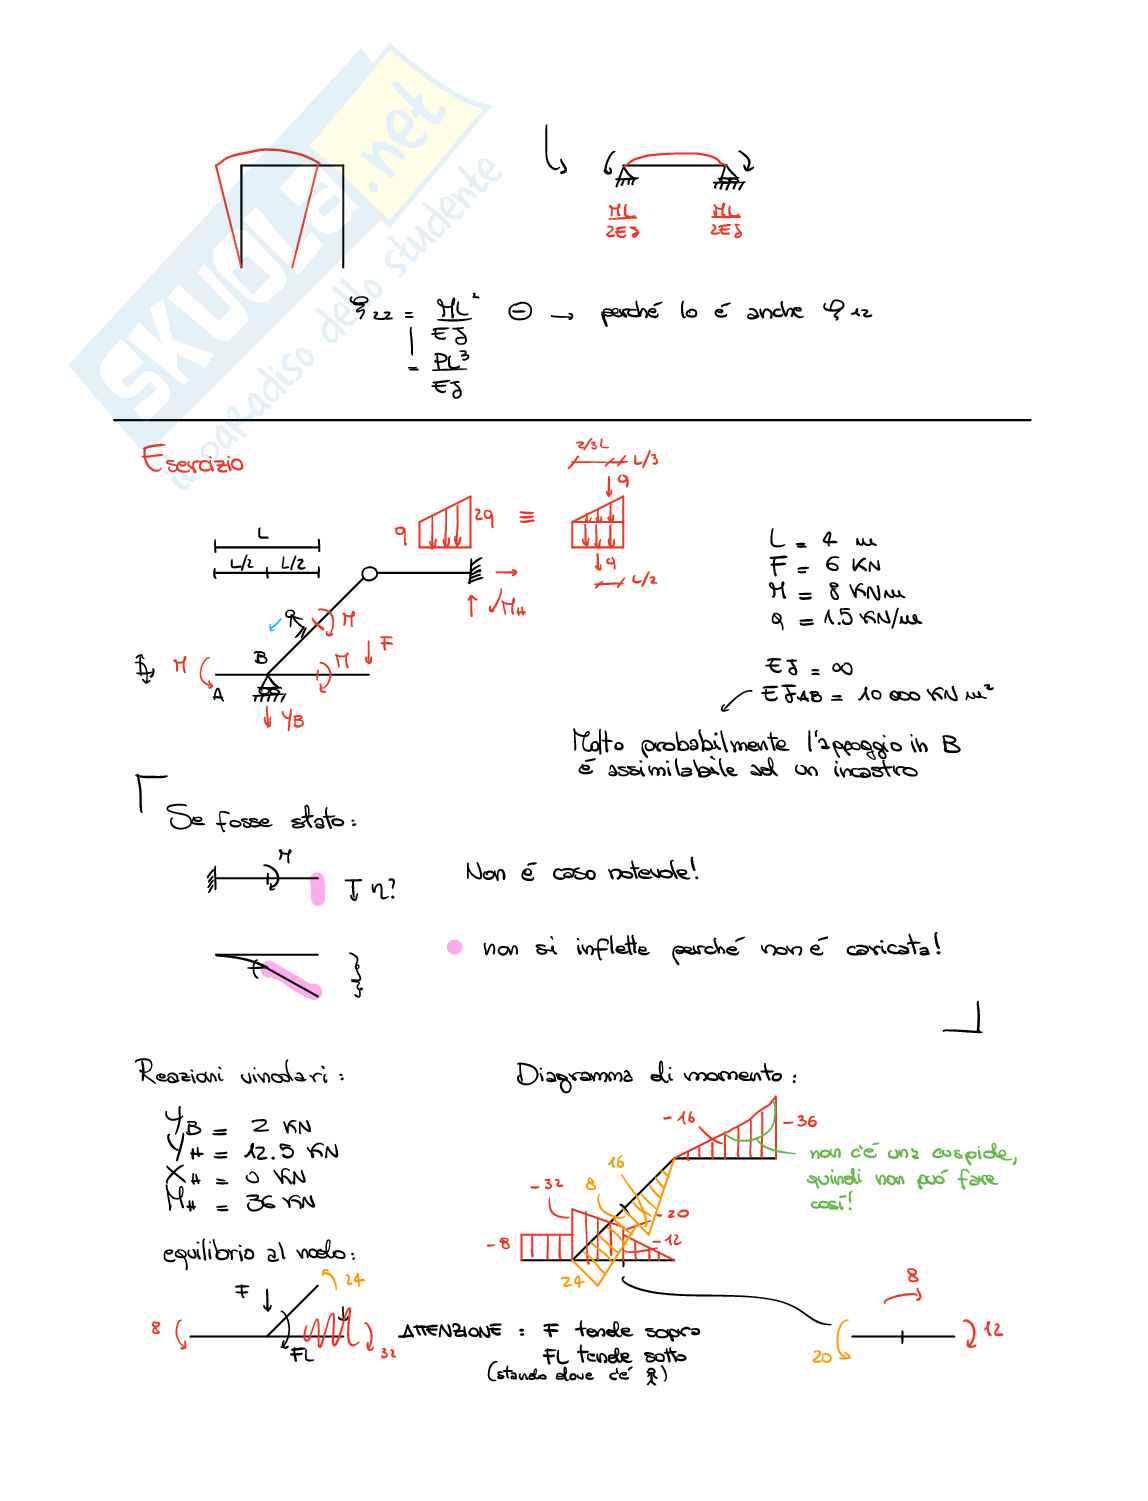 SKUOLA.net
il paradiso dello studente
ML/2EJ ML/2EJ
φ22 = ML²/EJ ⊖ → perché lo é anche φ12
= PL³/EJ
Esercizio
2/3L L/3
q
q 2q ≡
q
L/2
L
L/2 L/2
M_H
M
F
M B M
A
Y_B
L = 4 m
F = 6 KN
M = 8 KNm
q = 1.5 KN/m
EJ = ∞
EJ_AB = 10 000 KN m²
Molto probabilmente l'appoggio in B
é assimilabile ad un incastro
Se fosse stato:
M
↓ η?
Non é caso notevole!
non si inflette perché non é caricata!
Reazioni vincolari:
Y_B = 2 KN
Y_H = 12.5 KN
X_H = 0 KN
M_H = 36 KN
Diagramma di momento:
-16 -36
non c'é una cuspide,
quindi non puó fare
cosí!
16
8
-32
-20
-8 -12
24
equilibrio al nodo:
F 24
8
FL 32
ATTENZIONE: F tende sopra
FL tende sotto
(stando dove c'é )
8
20 12